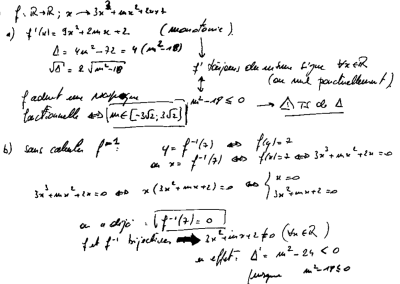 f: ℝ→ℝ ; x → 3x³+mx²+2x+7
a) f'(x) = 9x²+2mx+2 (monotonie)
Δ = 4m²-72 = 4(m²-18)
√Δ = 2√m²-18
f' toujours du même signe ∀x∈ℝ
(ou nul ponctuellement)
f admet une réciproque
fonctionnelle ⇔ m∈[-3√2; 3√2] m²-18 ≤ 0 → de Δ
b) sans calculer f⁻¹ y = f⁻¹(7) ⇔ f(y)=7
ou x = f⁻¹(7) ⇔ f(x)=7 ⇔ 3x³+mx²+2x=0
3x³+mx²+2x=0 ⇔ x(3x²+mx+2)=0 ⇔ { x=0
3x²+mx+2=0
on a déjà : f⁻¹(7)=0
f et f⁻¹ bijectives ➡ 3x²+mx+2≠0 (∀x∈ℝ)
en effet : Δ' = m²-24 < 0
puisque m²-18≤0